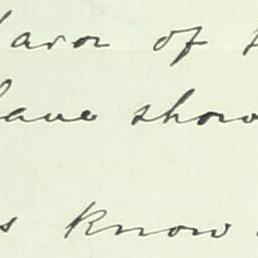 favor of
have show
s know